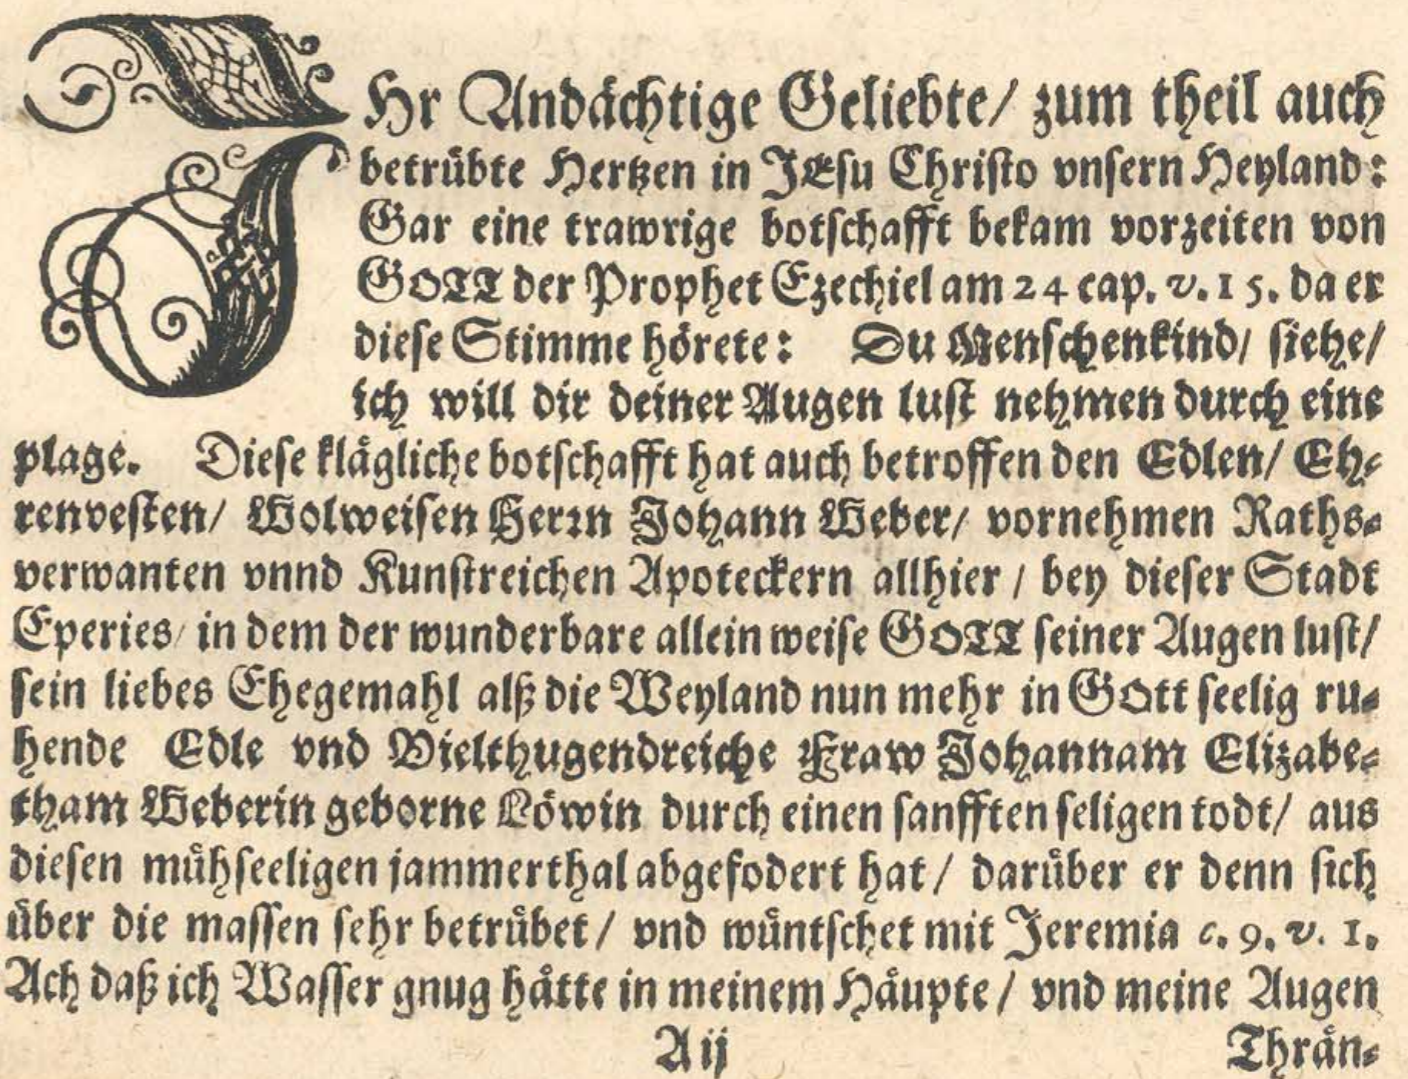 IHr Andächtige Geliebte/ zum theil auch
betrübte Hertzen in JEsu Christo vnsern Heyland:
Gar eine trawrige botschafft bekam vorzeiten von
GOTT der Prophet Ezechiel am 24 cap. v. 15. da er
diese Stimme hörete: Du Menschenkind/ siehe/
ich will dir deiner Augen lust nehmen durch eine
plage. Diese klägliche botschafft hat auch betroffen den Edlen/ Eh-
renvesten/ Wolweisen Herrn Johann Weber/ vornehmen Raths-
verwanten vnnd Kunstreichen Apoteckern allhier / bey dieser Stadt
Eperies/ in dem der wunderbare allein weise GOTT seiner Augen lust/
sein liebes Ehegemahl alß die Weyland nun mehr in GOtt seelig ru-
hende Edle vnd Vielthugendreiche Fraw Johannam Elizabe-
tham Weberin geborne Löwin durch einen sanfften seligen todt/ aus
diesen mühseeligen jammerthal abgefodert hat / darüber er denn sich
über die massen sehr betrübet / vnd wüntschet mit Jeremia c. 9. v. 1.
Ach daß ich Wasser gnug hätte in meinem Häupte / vnd meine Augen
A ij Thrän-